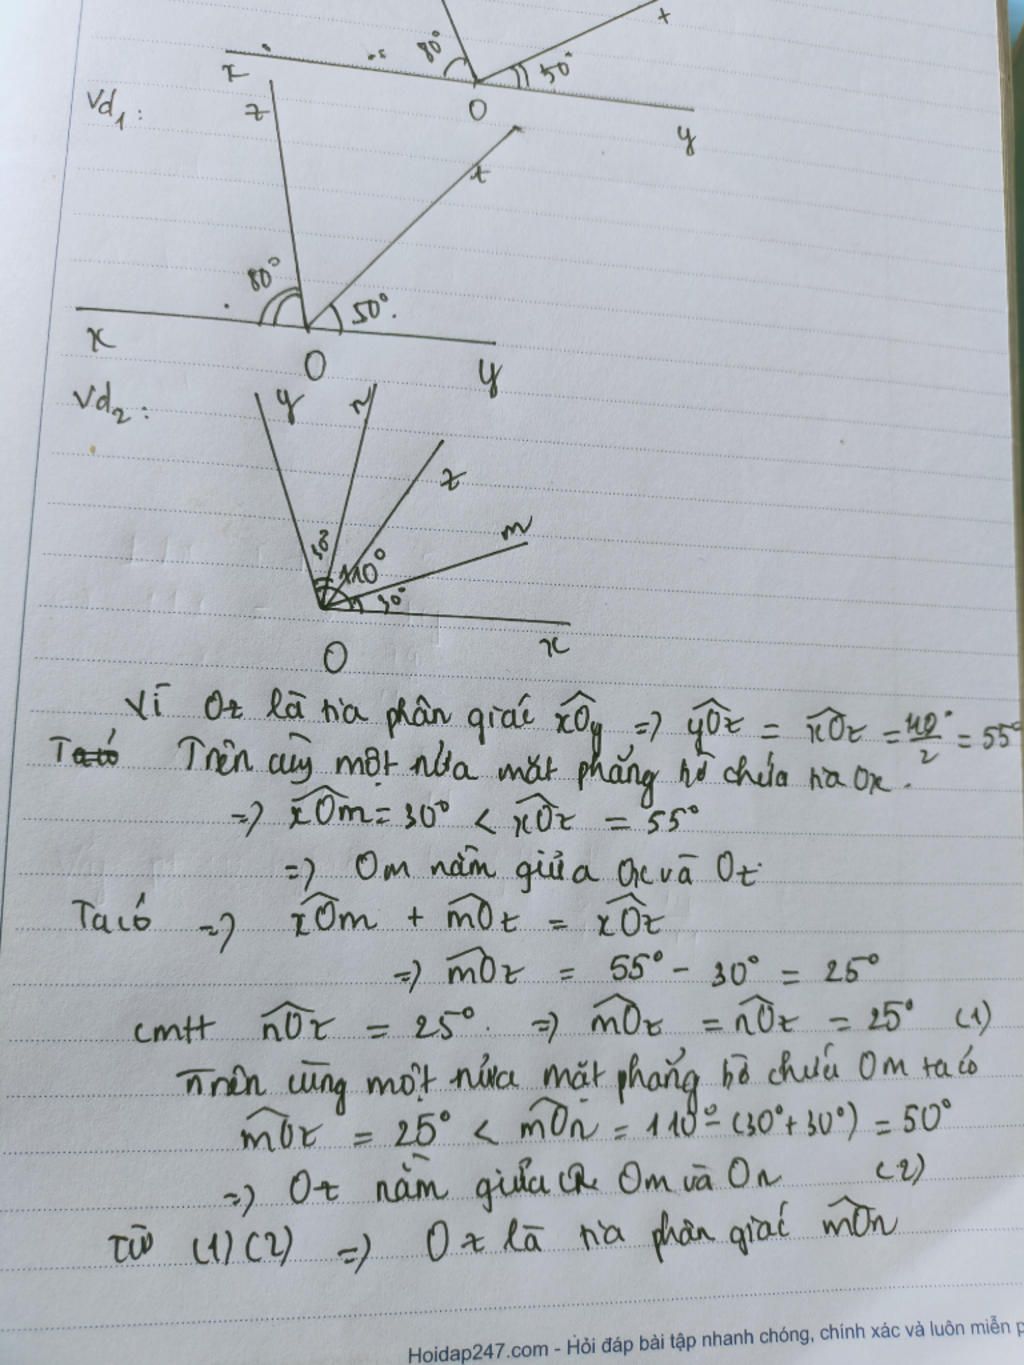 80° 50° t
x O y
Vd1:
z
t
80° 50°.
x O y
Vd2:
y n
z
m
30° 110° 30°
O x
Vì Oz là tia phân giác xOy => yOz = xOz = 110°/2 = 55°
Ta có Trên cùng một nửa mặt phẳng bờ chứa tia Ox.
=> xOm = 30° < xOz = 55°
=> Om nằm giữa Ox và Oz
Ta có => xOm + mOz = xOz
=> mOz = 55° - 30° = 25°
cmtt nOz = 25°. => mOz = nOz = 25° (1)
Trên cùng một nửa mặt phẳng bờ chứa Om ta có
mOz = 25° < mOn = 110° - (30° + 30°) = 50°
=> Oz nằm giữa Om và On (2)
Từ (1) (2) => Oz là tia phân giác mOn
Hoidap247.com - Hỏi đáp bài tập nhanh chóng, chính xác và luôn miễn p